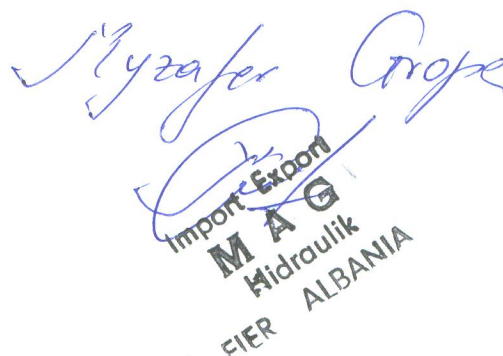 Myzafer Grope
Import Export
MAG
Hidraulik
FIER ALBANIA